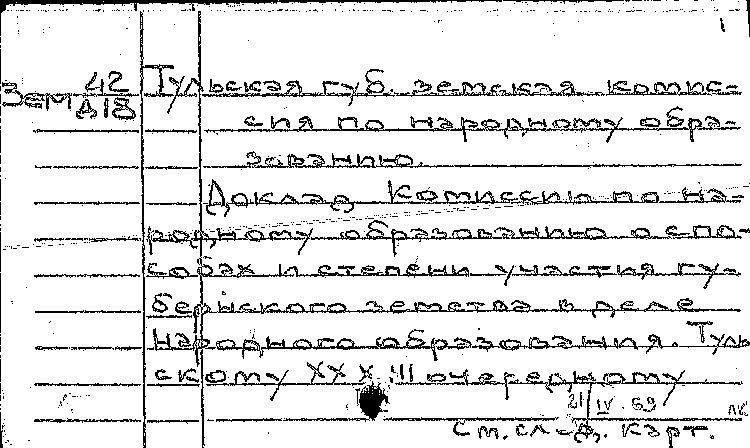 1
Зем 42
Д18
Тульская губ. земская комис-
сия по народному обра-
зованию.
Доклад Комиссии по на-
родному образованию о спо-
собах и степени участия гу-
бернского земства в деле
народного образования. Туль
скому XXXIII очередному
21/IV.69
См. сл-д. карт.